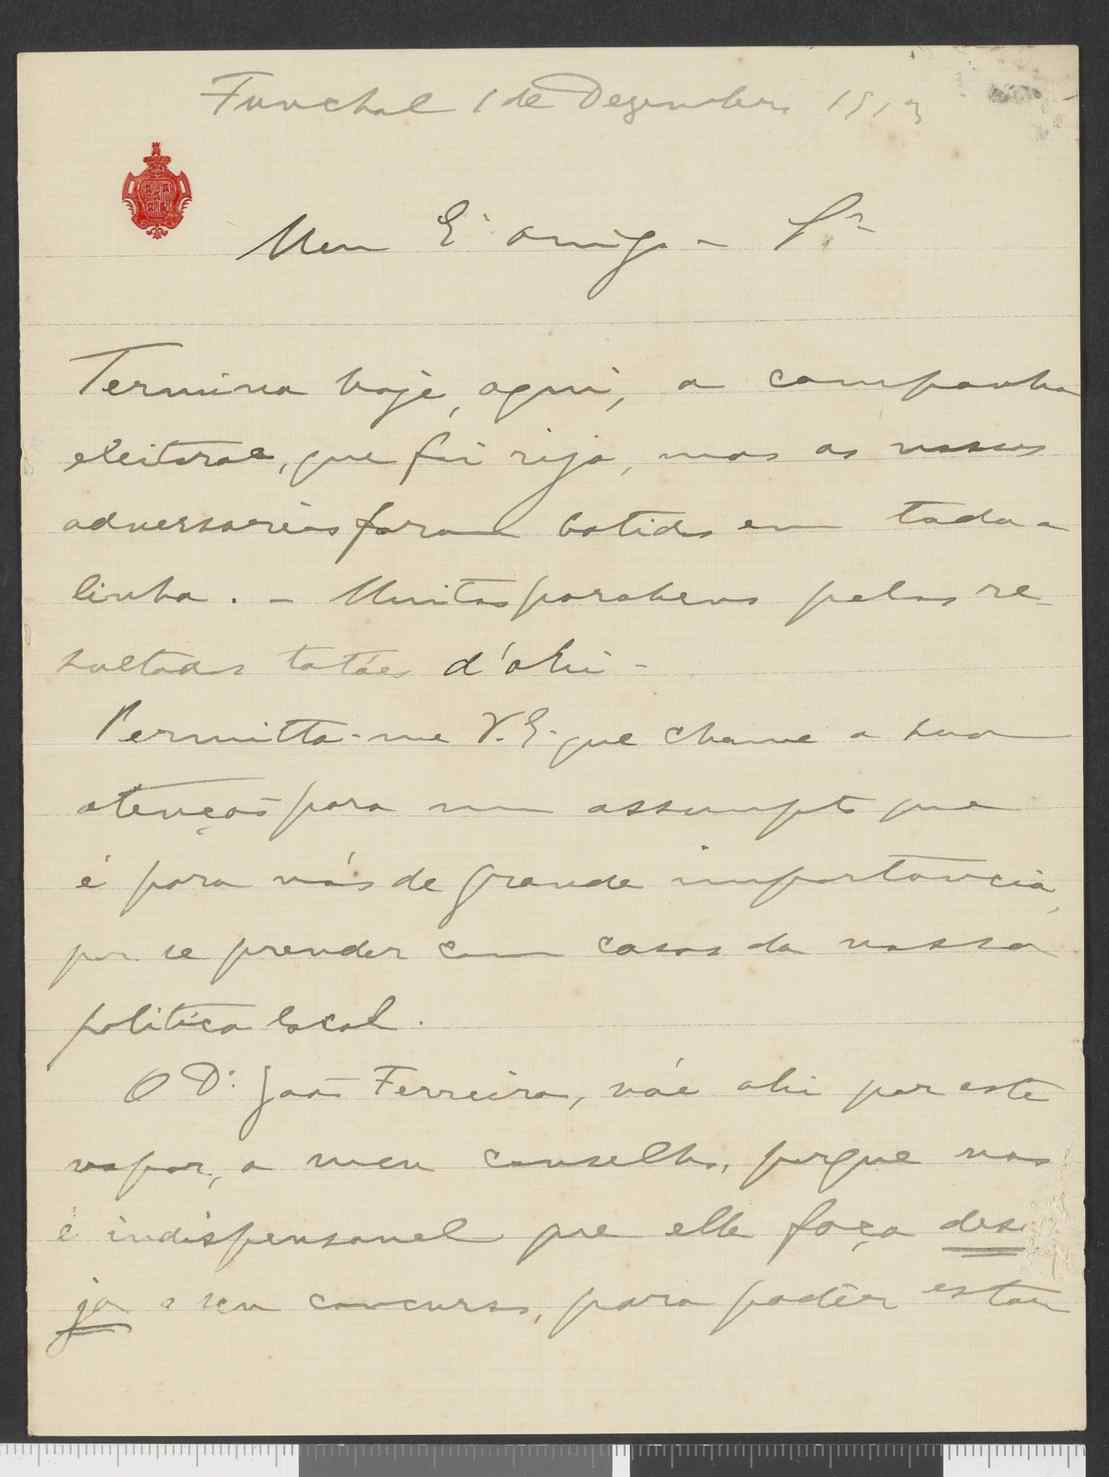 Funchal 1 de Dezembro 1913
Meu Eº amigo e Sr.
Termina hoje, aqui, a campanha
eleitoral, que foi rija, mas os nossos
adversarios foram batidos em toda a
linha. - Muitos parabens pelos re-
sultados totáes d'ahi -
Permitta-me V. Eª que chame a sua
atenção para um assumpto que
é para nós de grande importancia,
por se prender com casos da nossa
politica local.
O Dr. João Ferreira, váe ahi por este
vapor, a meu conselho, porque nos
é indispensavel que elle faça des
já o seu concurso, para podêr estar